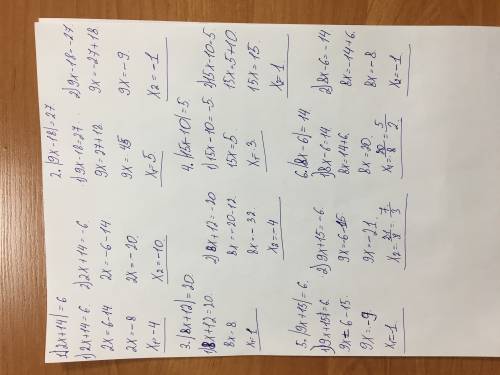 1. |2x+14|=6
1) 2x+14=6.
2x=6-14
2x=-8
x₁=-4
2) 2x+14=-6
2x=-6-14
2x=-20.
x₂=-10
2. |9x-18|=27.
1) 9x-18=27.
9x=27+18
9x=45
x₁=5
2) 9x-18=-27.
9x=-27+18
9x=-9.
x₂=-1
3. |8x+12|=20.
1) 8x+12=20.
8x=8
x₁=1
2) 8x+12=-20
8x=-20-12.
8x=-32.
x₂=-4
4. |15x-10|=5.
1) 15x-10=-5.
15x=5
2) 15x-10=5
15x=5+10
15x=15.
x₂=1
5. |9x+15|=6.
1) 9x+15=6
9x=6-15.
9x=-9
x₁=-1
2) 9x+15=-6.
9x=-6-15
9x=-21.
6. |8x-6|=14
1) 8x-6=14
8x=14+6.
8x=20.
x₁=20/8=5/2.
2) 8x-6=-14
8x=-14+6.
8x=-8
x₂=-1